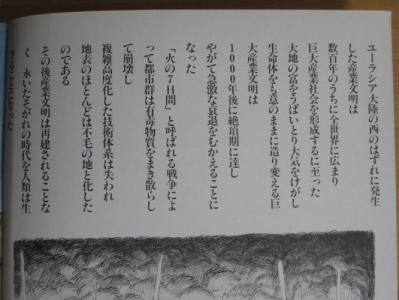 ユーラシア大陸の西のはずれに発生
した産業文明は
数百年のうちに全世界に広まり
巨大産業社会を形成するに至った
大地の富をうばいとり大気をけがし
生命体をも意のままに造り変える巨
大産業文明は
1000年後に絶頂期に達し
やがて急激な衰退をむかえることに
なった
「火の7日間」と呼ばれる戦争によ
って都市群は有毒物質をまき散らし
て崩壊し
複雑高度化した技術体系は失われ
地表のほとんどは不毛の地と化した
のである
その後産業文明は再建されることな
く 永いたそがれの時代を人類は生
きることになった